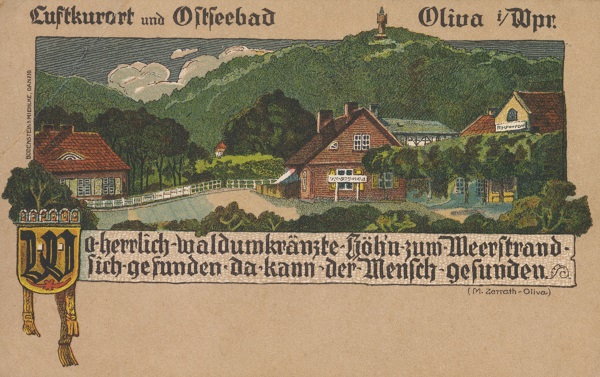 Luftkurort und Ostseebad Oliva i/Wpr.
Restaurant
Wo herrlich·waldumkränzte·Höh'n·zum·Meerstrand·
sich·gefunden·da·kann·der·Mensch·gesunden.
(M. Zorrath-Oliva)